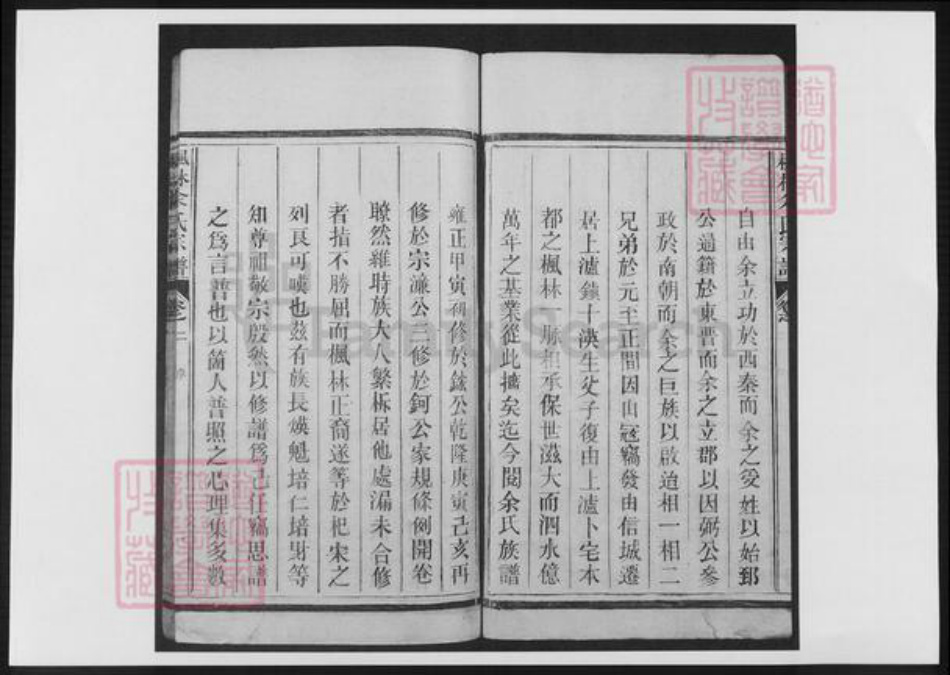 自由余立功於西秦而余之受姓以始郅
公過籍於東晋而余之立郡以因弼公參
政於南朝而余之巨族以啟迨相一相二
兄弟於元至正間因山冦竊發由信城遷
居上瀘鎮十泱生父子復由上瀘卜宅本
都之楓林一脉相承保世滋大而泗水億
萬年之基業從此擴矣迄今閱余氏族譜
雍正甲寅初修於鉉公乾隆庚寅己亥再
修於宗濂公三修於鈳公家規條例開卷
瞭然維時族大人繁柝居他處漏未合修
者指不勝屈而楓林正裔遂等於杞宋之
列良可嘆也茲有族長煐魁培仁培財等
知尊祖敬宗殷然以修譜為己任竊思譜
之為言普也以箇人普照之心理集多數
楓林余氏宗譜 卷之二 序